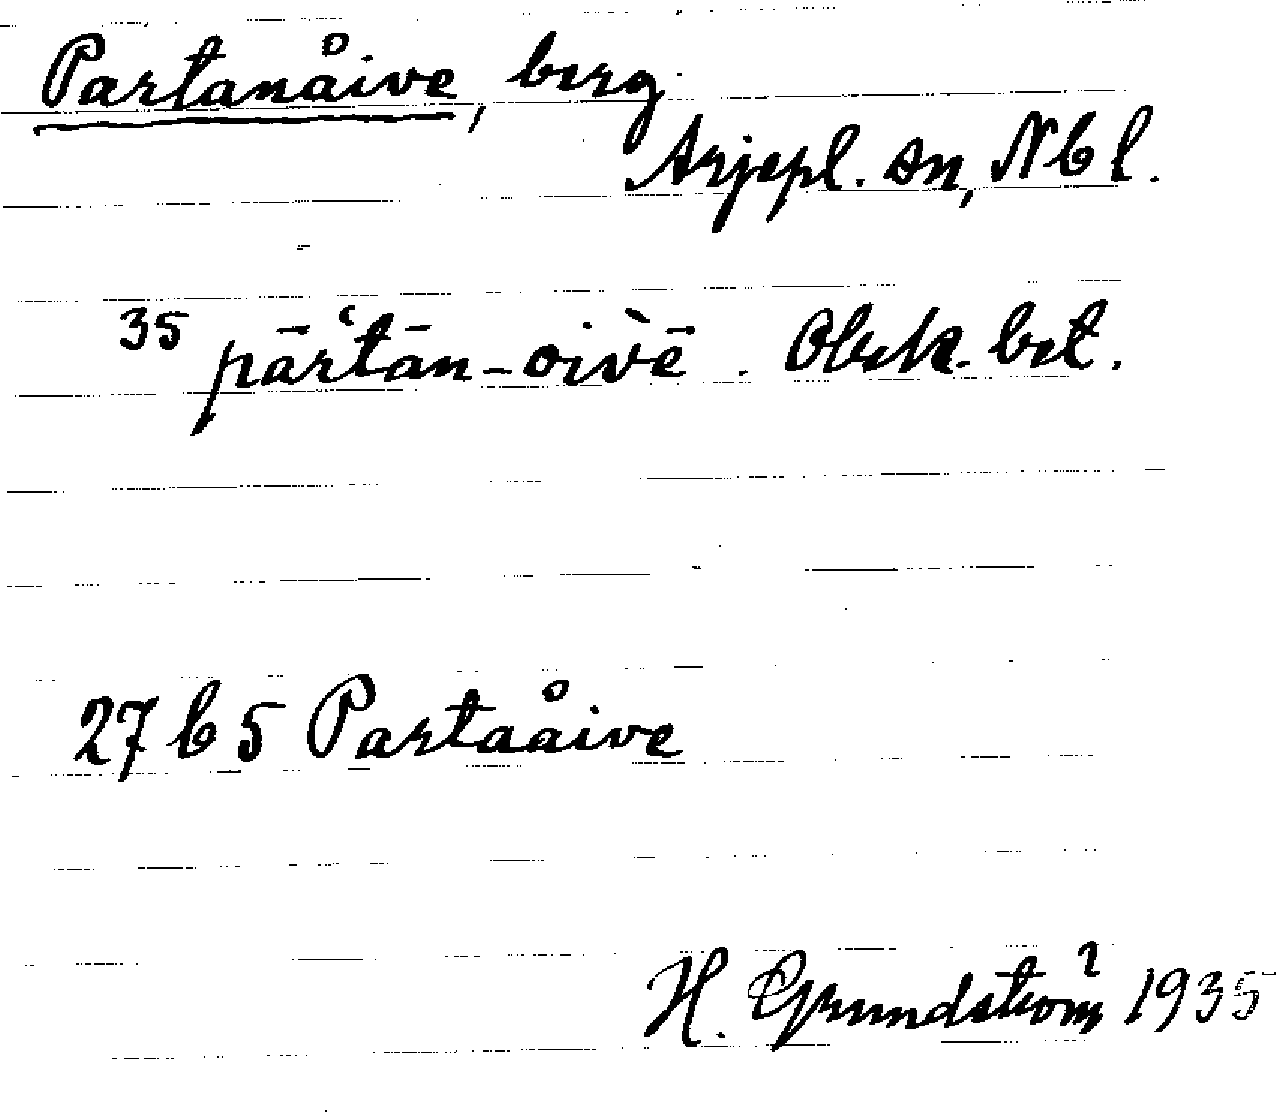 Partanåive, berg
Arjepl. sn, Nbl.
35 pārʻtān-oi̇̀vē. Obek. bet.
27 b 5 Partaåive
H. Grundström 1935